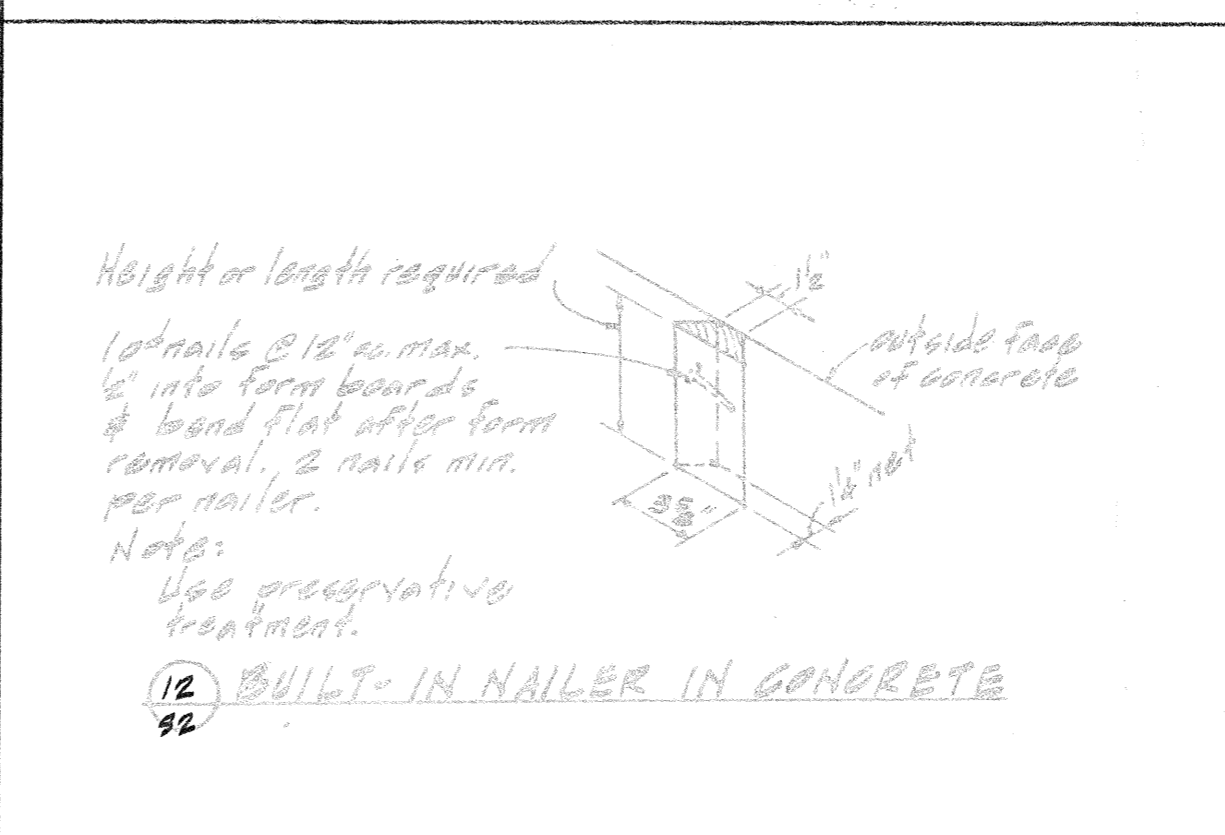 Height or length required
10d nails @ 12" oc. max.
½" into form boards
& bend flat after form
removal. 2 nails min.
per nailer.
Note:
Use preservative
treatment.
1½"
outside face
of concrete
3⅝"
net
12
S2
BUILT-IN NAILER IN CONCRETE